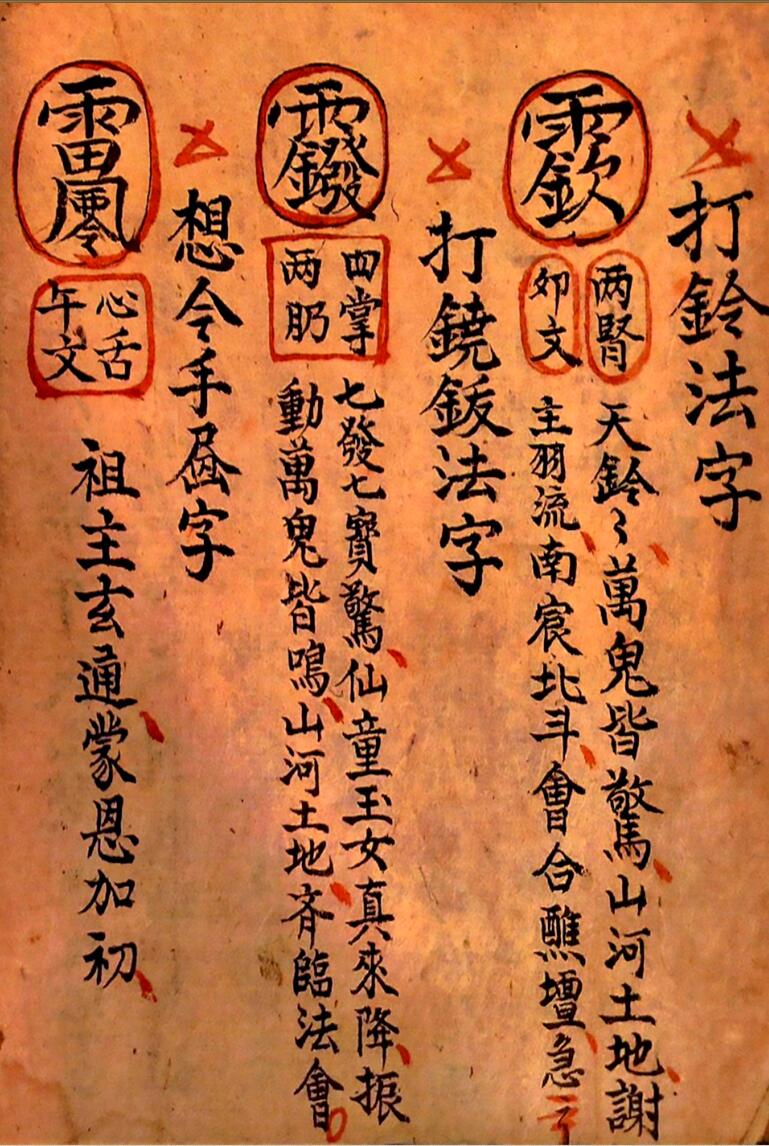 打鈴法字
两腎
卯文
天鈴〻萬鬼皆驚山河土地謝
主羽流南宸北斗會合醮壇急
打鐃鈸法字
四掌
两肭
七發七寶驚仙童玉女真來降振
動萬鬼皆鳴山河土地斉臨法會
想令手字
心舌
午文
祖主玄通蒙恩加初